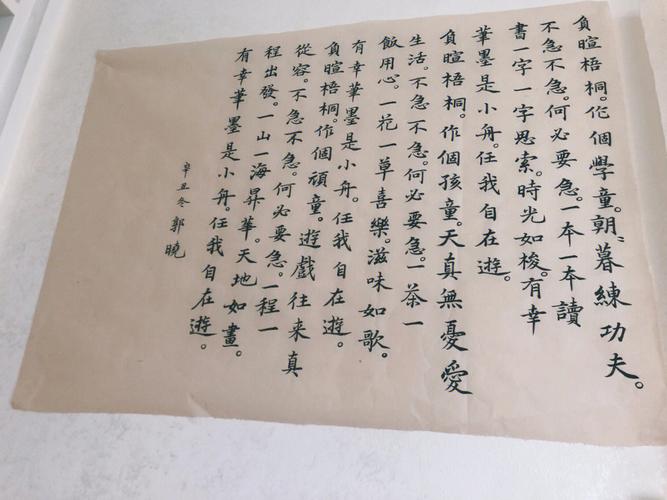 負暄梧桐。作個學童。朝〻暮練功夫。
不急不急。何必要急。一本一本讀
書一字一字思索。時光如梭。有幸
筆墨是小舟。任我自在遊。
負暄梧桐。作個孩童。天真無憂愛
生活。不急不急。何必要急。一茶一
飯用心。一花一草喜樂。滋味如歌。
有幸筆墨是小舟。任我自在遊。
負暄梧桐。作個頑童。遊戲往来真
從容。不急不急。何必要急。一程一
程出發。一山一海昇華。天地如畫。
有幸筆墨是小舟。任我自在遊。
辛丑冬郭曉